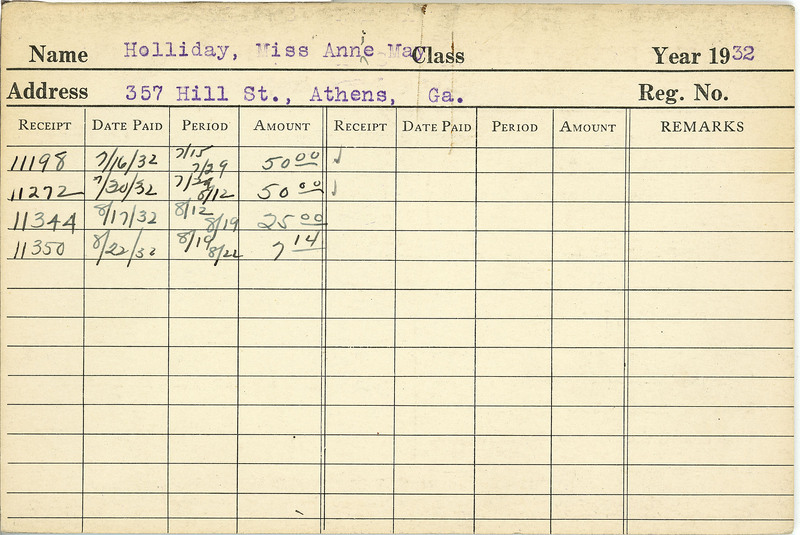 Name Holliday, Miss Anne May Class Year 1932
Address 357 Hill St., Athens, Ga. Reg. No.
RECEIPT DATE PAID PERIOD AMOUNT RECEIPT DATE PAID PERIOD AMOUNT REMARKS
11198 7/16/32 7/15 7/29 50 00 ✓
11272 7/30/32 7/29 8/12 50 00 ✓
11344 8/17/32 8/12 8/19 25 00
11350 8/22/32 8/19 8/22 7 14